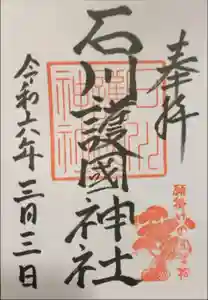 奉拝
石川護國神社
令和六年三月三日